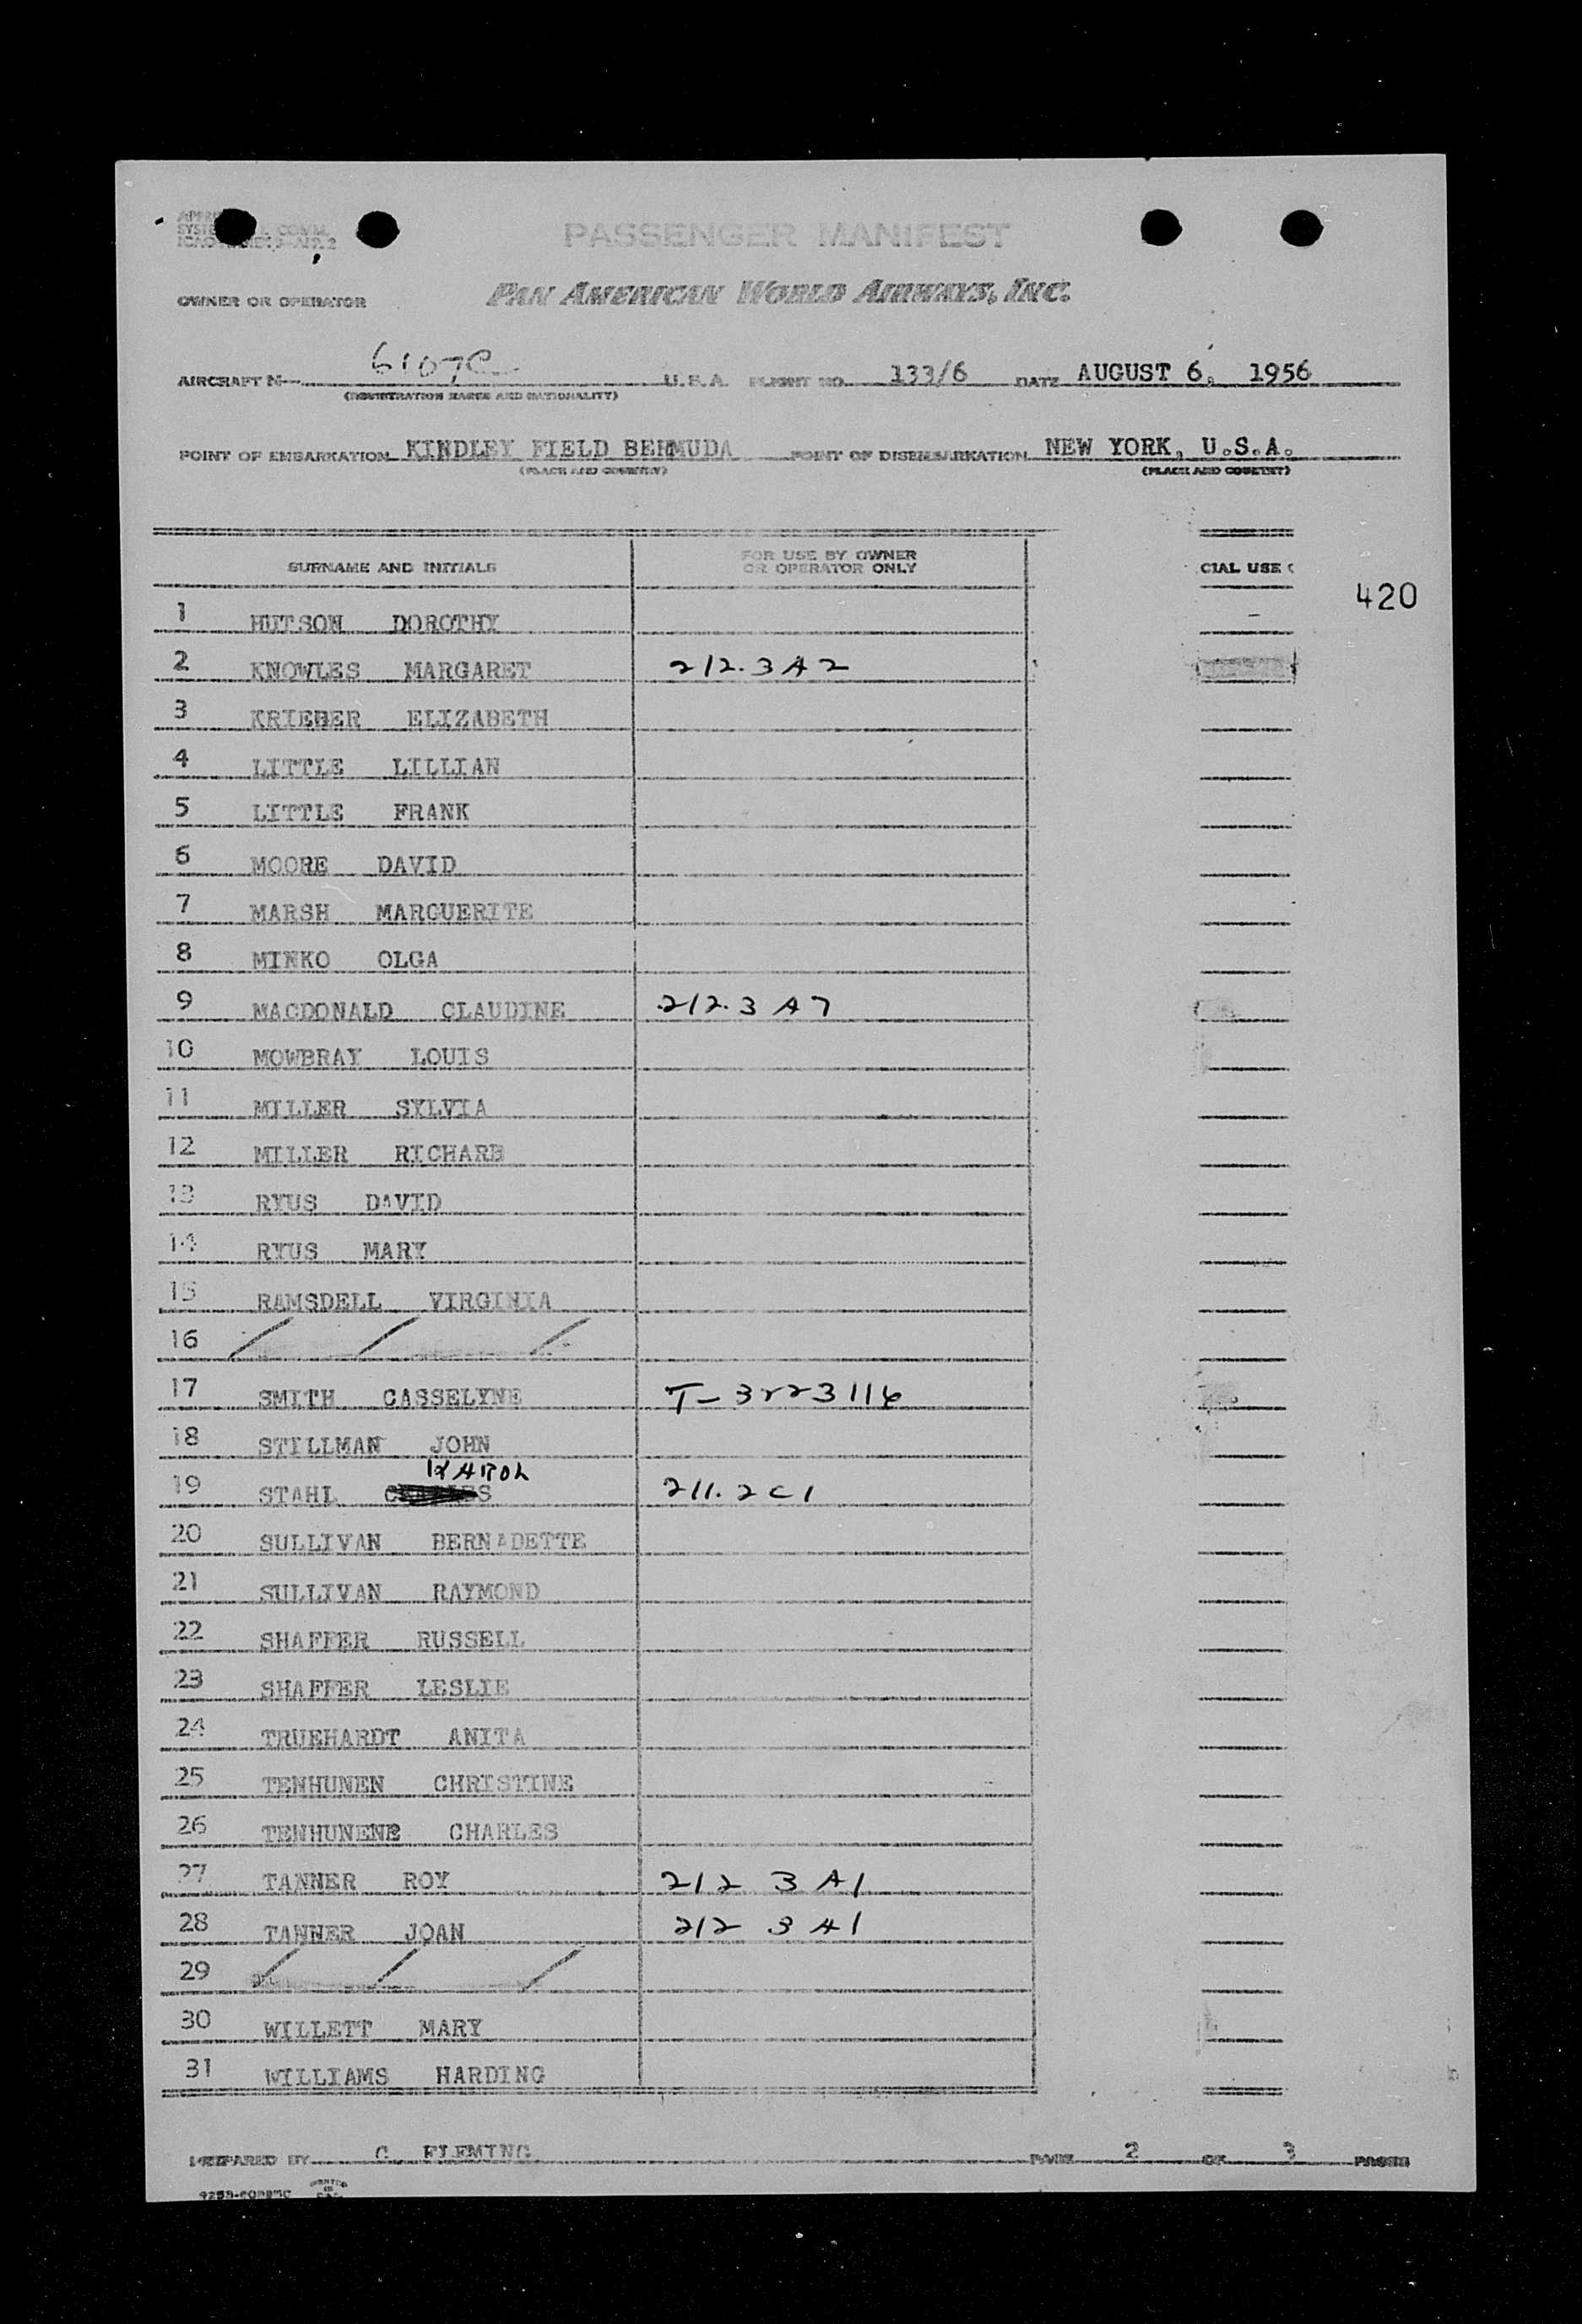 PASSENGER MANIFEST
OWNER OR OPERATOR PAN AMERICAN WORLD AIRWAYS, INC.
AIRCRAFT N— 6107C U.S.A. FLIGHT NO. 133/6 DATE AUGUST 6, 1956
(REGISTRATION MARKS AND NATIONALITY)
POINT OF EMBARKATION KINDLEY FIELD BERMUDA POINT OF DISEMBARKATION NEW YORK, U.S.A.
(PLACE AND COUNTRY) (PLACE AND COUNTRY)
SURNAME AND INITIALS FOR USE BY OWNER OR OPERATOR ONLY CIAL USE
420
1 HUTSON DOROTHY
2 KNOWLES MARGARET 212.3A2
3 KRIEBER ELIZABETH
4 LITTLE LILLIAN
5 LITTLE FRANK
6 MOORE DAVID
7 MARSH MARGUERITE
8 MINKO OLGA
9 MACDONALD CLAUDINE 212.3 A7
10 MOWBRAY LOUIS
11 MILLER SYLVIA
12 MILLER RICHARD
13 RYUS DAVID
14 RYUS MARY
15 RAMSDELL VIRGINIA
16 / / /
17 SMITH CASSELYNE T-3223116
18 STILLMAN JOHN
19 STAHL KAROL 211.2C1
20 SULLIVAN BERNADETTE
21 SULLIVAN RAYMOND
22 SHAFFER RUSSELL
23 SHAFFER LESLIE
24 TRUEHARDT ANITA
25 TENHUNEN CHRISTINE
26 TENHUNENE CHARLES
27 TANNER ROY 212 3 A1
28 TANNER JOAN 212 3 A1
29 / / /
30 WILLETT MARY
31 WILLIAMS HARDING
PREPARED BY C. FLEMING PAGE 2 OF 3 PAGES